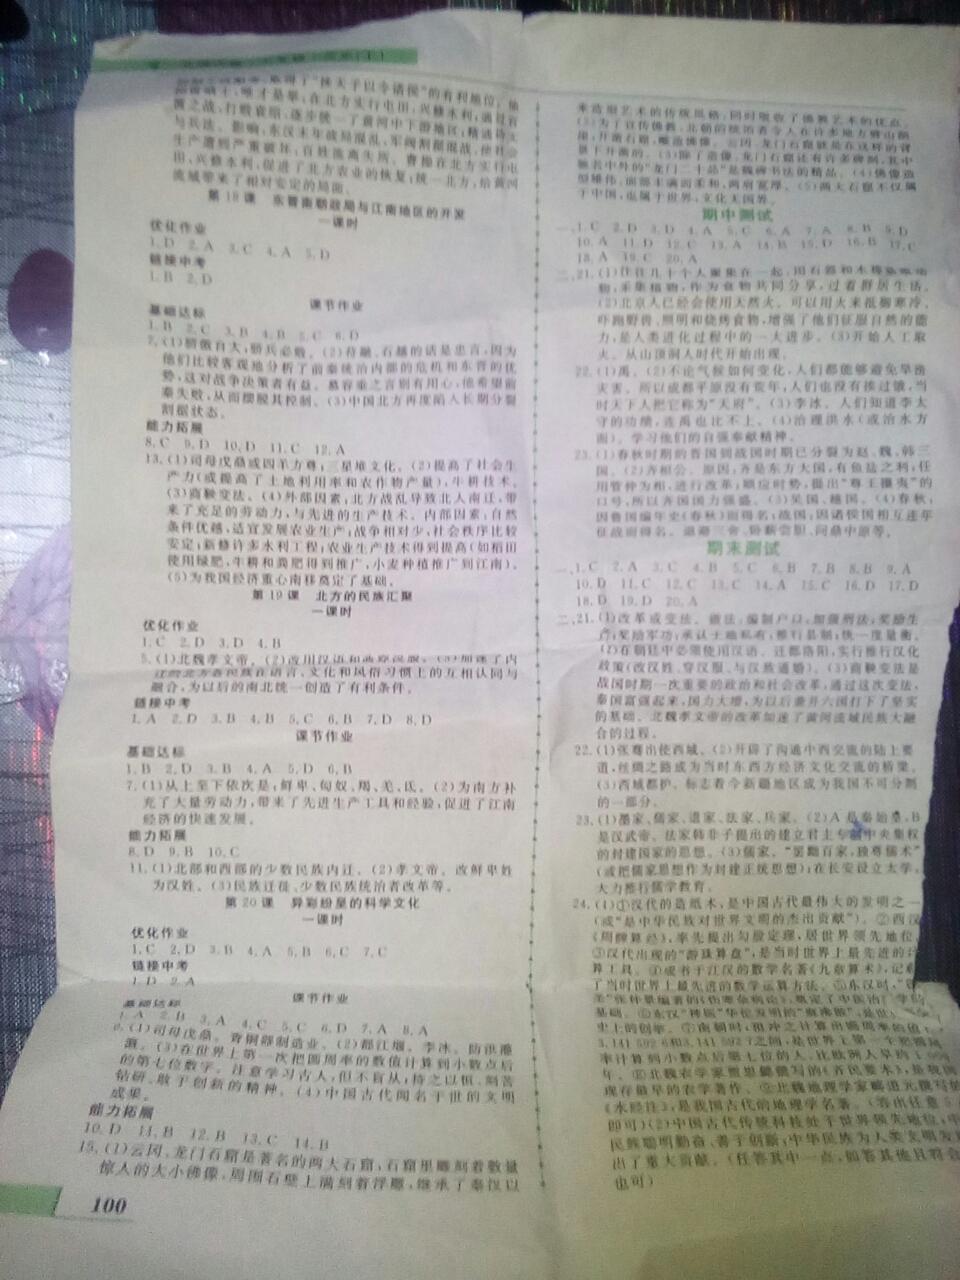 的有利地位，他
唯才是举；在北方实行屯田，兴修水利；通过官
渡之战，打败袁绍，逐步统一了黄河中下游地区；精通诗文
与兵法。影响：东汉末年战局混乱，军阀割据混战，使社会
生产遭到严重破坏，百姓流离失所。曹操在北方实行屯
田，兴修水利，促进了北方农业的恢复；统一北方，给黄河
流域带来了相对安定的局面。
第18课 东晋南朝政局与江南地区的开发
一课时
优化作业
1. D 2. A 3. C 4. A 5. D
链接中考
1. B 2. D
课节作业
基础达标
1. B 2. C 3. B 4. B 5. C 6. D
7. (1)骄傲自大，骄兵必败。(2)苻融、石越的话是忠言，因为
他们比较客观地分析了前秦统治内部的危机和东晋的优
势，这对战争决策者有益。慕容垂之言别有用心，他希望前
秦失败，从而摆脱其控制。(3)中国北方再度陷入长期分裂
割据状态。
能力拓展
8. C 9. D 10. D 11. C 12. A
13. (1)司母戊鼎或四羊方尊；三星堆文化。(2)提高了社会生
产力(或提高了土地利用率和农作物产量)，牛耕技术。
(3)商鞅变法。(4)外部因素：北方战乱导致北人南迁，带
来了充足的劳动力，与先进的生产技术。内部因素：自然
条件优越，适宜发展农业生产；战争相对少，社会秩序比较
安定；新修许多水利工程；农业生产技术得到提高(如稻田
使用绿肥，牛耕和粪肥得到推广，小麦种植推广到江南)。
(5)为我国经济重心南移奠定了基础。
第19课 北方的民族汇聚
一课时
优化作业
1. C 2. D 3. D 4. B
5. (1)北魏孝文帝。(2)改用汉语和改穿汉服。(3)加速了内
迁的北方各民族在语言、文化和风俗习惯上的互相认同与
融合，为以后的南北统一创造了有利条件。
链接中考
1. A 2. D 3. B 4. B 5. C 6. B 7. D 8. D
课节作业
基础达标
1. B 2. D 3. B 4. A 5. D 6. B
7. (1)从上至下依次是：鲜卑、匈奴、羯、羌、氐。(2)为南方补
充了大量劳动力，带来了先进生产工具和经验，促进了江南
经济的快速发展。
能力拓展
8. D 9. B 10. C
11. (1)北部和西部的少数民族内迁。(2)孝文帝。改鲜卑姓
为汉姓。(3)民族迁徙、少数民族统治者改革等。
第20课 异彩纷呈的科学文化
一课时
优化作业
1. C 2. D 3. B 4. A 5. B 6. C 7. C
链接中考
1. D 2. A
课节作业
基础达标
1. A 2. B 3. A 4. C 5. C 6. D 7. A 8. A
9. (1)司母戊鼎。青铜器制造业。(2)都江堰。李冰。防洪灌
溉。(3)在世界上第一次把圆周率的数值计算到小数点后
的第七位数字。注意学习古人，但不盲从；持之以恒、刻苦
钻研、敢于创新的精神。(4)中国古代闻名于世的文明
成果。
能力拓展
10. D 11. B 12. B 13. C 14. B
15. (1)云冈、龙门石窟是著名的两大石窟；石窟里雕刻着数量
惊人的大小佛像，周围石壁上满刻着浮雕，继承了秦汉以
100
来造型艺术的传统风格，同时吸收了佛教艺术的优点。
(2)为了宣传佛教，北朝的统治者令人在许多地方劈山削
崖，开凿石窟，雕造佛像。云冈、龙门石窟就是在这样的背
景下开凿的。(3)除了造像，龙门石窟还有许多碑刻，其中
驰名中外的“龙门二十品”是魏碑书法的精品。(4)佛像造
型雄伟，面部丰满而柔和，两肩宽厚。(5)两大石窟不仅属
于中国，也属于世界，文化无国界。
期中测试
一、1. C 2. D 3. D 4. A 5. C 6. A 7. A 8. B 9. D
10. A 11. D 12. C 13. A 14. B 15. D 16. B 17. C
18. A 19. C 20. A
二、21. (1)往往几十个人聚集在一起，用石器和木棒
物，采集植物，作为食物共同分享，过着群居生活。
(2)北京人已经会使用天然火。可以用火来抵御寒冷、
吓跑野兽、照明和烧烤食物，增强了他们征服自然的能
力，是人类进化过程中的一大进步。(3)开始人工取
火。从山顶洞人时代开始出现。
22. (1)禹。(2)不论气候如何变化，人们都能够避免旱涝
灾害。所以成都平原没有荒年，人们也没有挨过饿，当
时天下人把它称为“天府”。(3)李冰。人们知道李太
守的功绩，连禹也比不上。(4)治理洪水(或治水方
面)。学习他们的自强奉献精神。
23. (1)春秋时期的晋国到战国时期已分裂为赵、魏、韩三
国。(2)齐桓公。原因：齐是东方大国，有鱼盐之利；任
用管仲为相，进行改革；顺应时势，提出“尊王攘夷”的
口号，所以齐国国力强盛。(3)吴国、越国。(4)春秋，
因鲁国编年史《春秋》而得名；战国，因诸侯国相互连年
征战而得名。退避三舍、卧薪尝胆、问鼎中原等。
期末测试
一、1. C 2. A 3. C 4. B 5. C 6. B 7. B 8. B 9. A
10. D 11. C 12. C 13. C 14. A 15. C 16. D 17. D
18. D 19. D 20. A
二、21. (1)改革或变法。做法：编制户口，加强刑法；奖励生
产；奖励军功；承认土地私有；推行县制；统一度量衡。
(2)在朝廷中必须使用汉语、迁都洛阳，实行推行汉化
政策(改汉姓、穿汉服、与汉族通婚)。(3)商鞅变法是
战国时期一次重要的政治和社会改革，通过这次变法，
秦国富强起来，国力大增，为以后兼并六国打下了坚实
的基础。北魏孝文帝的改革加速了黄河流域民族大融
合的过程。
22. (1)张骞出使西域。(2)开辟了沟通中西交流的陆上要
道，丝绸之路成为当时东西方经济文化交流的桥梁。
(3)西域都护。标志着今新疆地区成为我国不可分割
的一部分。
23. (1)墨家、儒家、道家、法家、兵家。(2)A是秦始皇，B
是汉武帝。法家韩非子提出的建立君主专制中央集权
的封建国家的思想。(3)儒家。“罢黜百家，独尊儒术”
(或把儒家思想作为封建正统思想)；在长安设立太学，
大力推行儒学教育。
24. (1)①汉代的造纸术，是中国古代最伟大的发明之一
(或“是中华民族对世界文明的杰出贡献”)。②西汉
《周髀算经》，率先提出勾股定理，居世界领先地位。
③汉代出现的“游珠算盘”，是当时世界上最先进的计
算工具。④成书于江汉的数学名著《九章算术》，记载
了当时世界上最先进的数学运算方法。⑤东汉时，“
张仲景编著的《伤寒杂病论》，奠定了中医治疗学的
基础。⑥东汉“神医”华佗发明的“麻沸散”，是世
史上的创举。⑦南朝时，祖冲之计算出圆周率的值
3.141 592 6和3.141 592 7之间，是世界上第一个把圆周
率计算到小数点后第七位的人，比欧洲人早约1 000
年。⑧北魏农学家贾思勰撰写的《齐民要术》，是我国
现存最早的农学著作。⑨北魏地理学家郦道元撰写的
《水经注》，是我国古代的地理学名著。(答出任意5
即可)(2)中国古代传统科技处于世界领先地位，中
民族聪明勤奋、善于创新；中华民族为人类文明发
出了重大贡献。(任答其中一点，如答其他且符合
也可)